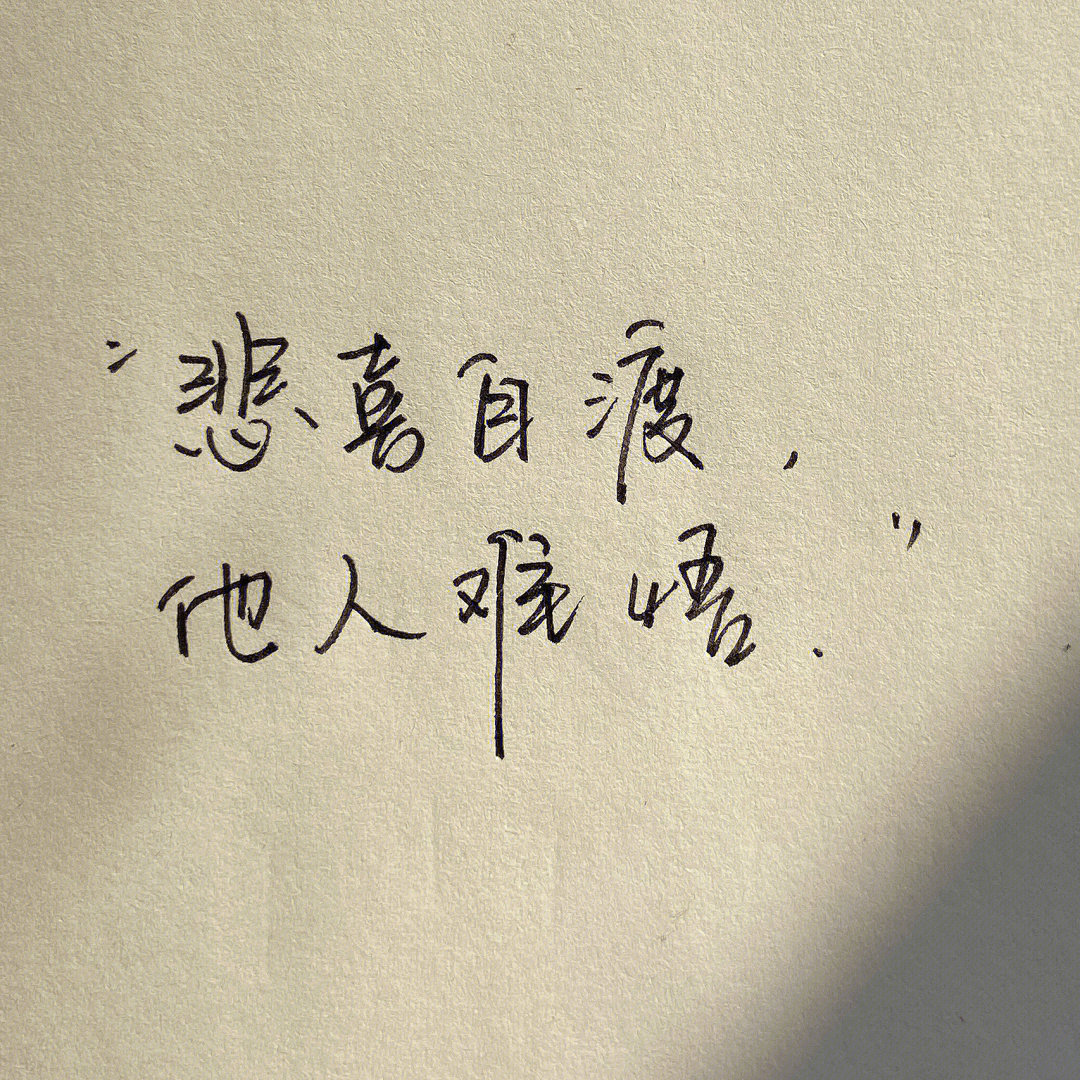 “悲喜自渡,
他人难悟.”